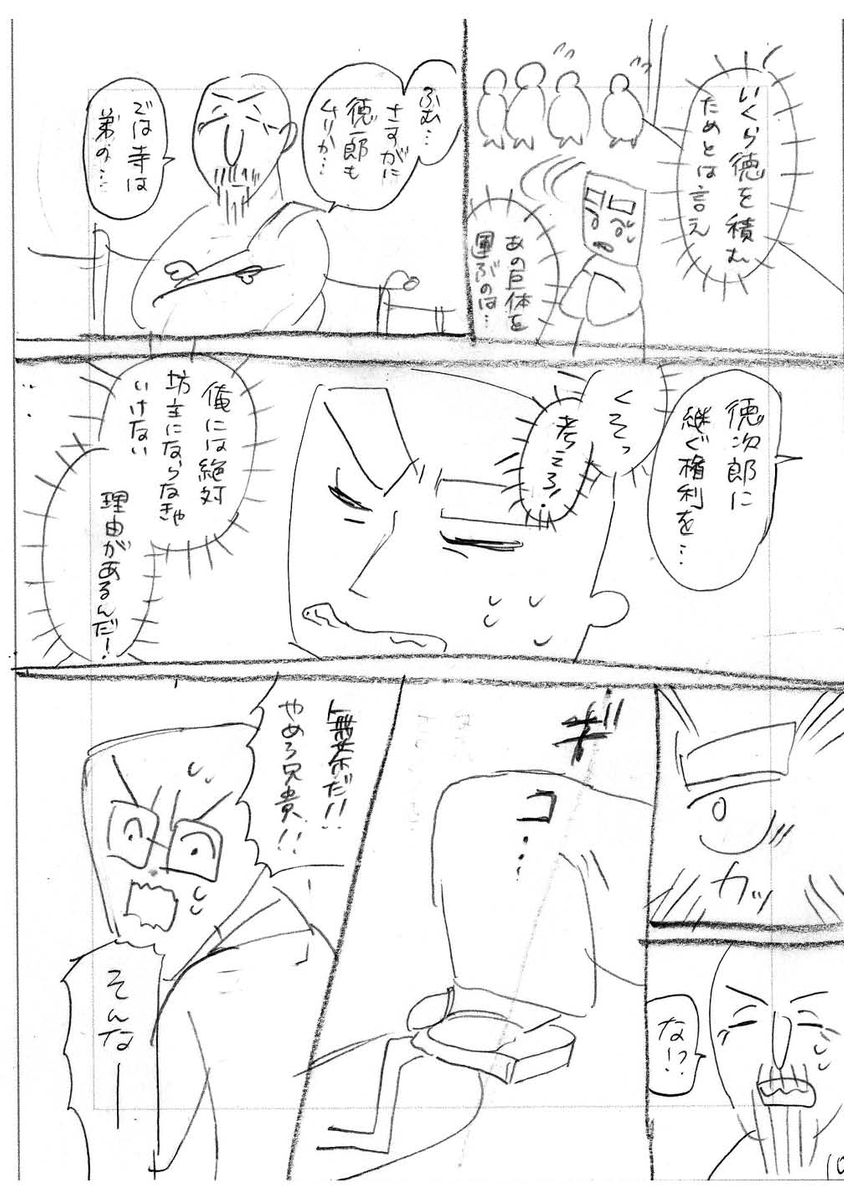 いくら徳を積む
ためとは言え
あの巨体を
運ぶのは…
ふむ…
さすがに
徳一郎も
ムリか…
では寺は
弟の…
徳次郎に
継ぐ権利を…
くそっ
考えろ!
俺には絶対
坊主にならなきゃ
いけない
理由があるんだ!
カッ
な!?
ギ
コ
…
無茶だ!!
やめろ兄貴!!
そんなー
10